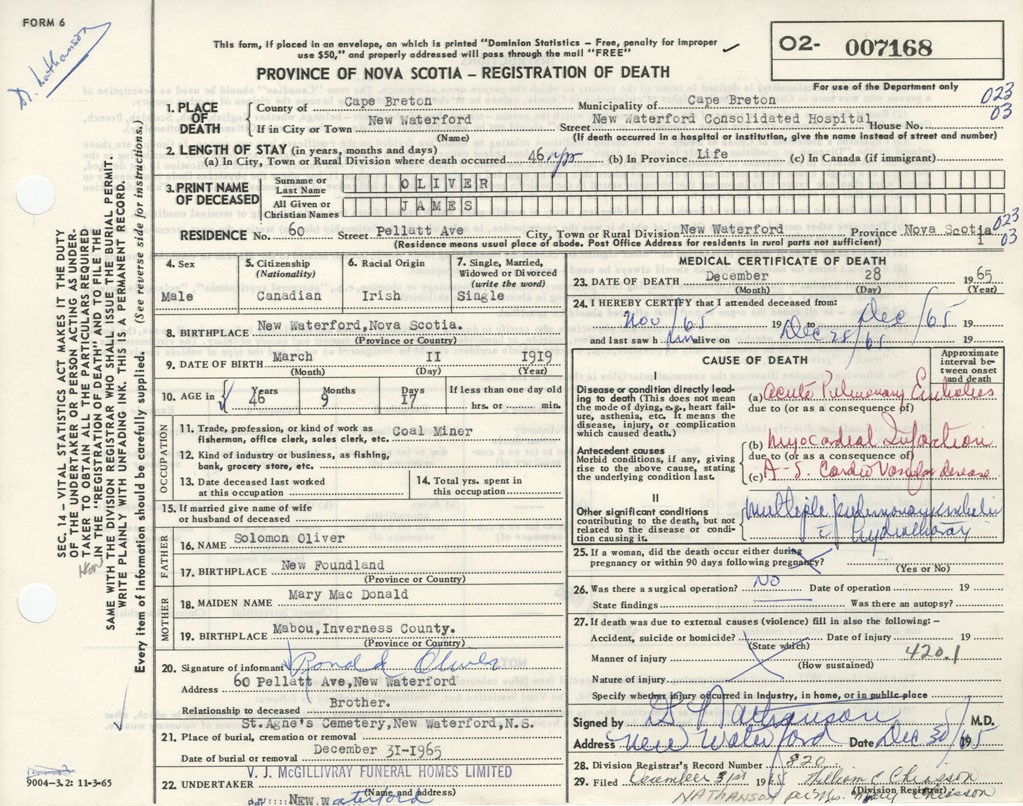 FORM 6
Dr. Nathanson
This form, if placed in an envelope, on which is printed "Dominion Statistics – Free, penalty for improper
use $50," and properly addressed will pass through the mail "FREE"
02- 007168
For use of the Department only
PROVINCE OF NOVA SCOTIA – REGISTRATION OF DEATH
023
03
1. PLACE OF DEATH
County of Cape Breton Municipality of Cape Breton
If in City or Town New Waterford Street New Waterford Consolidated Hospital House No.
(Name) (If death occurred in a hospital or institution, give the name instead of street and number)
2. LENGTH OF STAY (in years, months and days)
(a) In City, Town or Rural Division where death occurred 46 yrs (b) In Province Life (c) In Canada (if immigrant)
3. PRINT NAME OF DECEASED
Surname or Last Name OLIVER
All Given or Christian Names JAMES
RESIDENCE No. 60 Street Pellatt Ave City, Town or Rural Division New Waterford Province Nova Scotia
(Residence means usual place of abode. Post Office Address for residents in rural parts not sufficient) 1
023
03
4. Sex 5. Citizenship (Nationality) 6. Racial Origin 7. Single, Married, Widowed or Divorced (write the word)
Male Canadian Irish Single
8. BIRTHPLACE New Waterford,Nova Scotia.
(Province or Country)
9. DATE OF BIRTH March 11 1919
(Month) (Day) (Year)
10. AGE in Years Months Days If less than one day old
46 9 17 hrs. or min.
OCCUPATION
11. Trade, profession, or kind of work as
fisherman, office clerk, sales clerk, etc. Coal Miner
12. Kind of industry or business, as fishing,
bank, grocery store, etc.
13. Date deceased last worked
at this occupation
14. Total yrs. spent in
this occupation
15. If married give name of wife
or husband of deceased
FATHER
16. NAME Solomon Oliver
17. BIRTHPLACE New Foundland
(Province or Country)
MOTHER
18. MAIDEN NAME Mary Mac Donald
19. BIRTHPLACE Mabou,Inverness County.
(Province or Country)
20. Signature of informant Ronald Oliver
Address 60 Pellatt Ave,New Waterford
Relationship to deceased Brother.
St.Agne's Cemetery,New Waterford,N.S.
21. Place of burial, cremation or removal
Date of burial or removal December 31-1965
22. UNDERTAKER V. J. McGILLIVRAY FUNERAL HOMES LIMITED
(Name and Address)
NEW Waterford
MEDICAL CERTIFICATE OF DEATH
23. DATE OF DEATH December 28 1965
(Month) (Day) (Year)
24. I HEREBY CERTIFY that I attended deceased from:
Nov/65 19 to Dec/65 19
and last saw him alive on Dec 28/65 19
CAUSE OF DEATH
Approximate interval between onset and death
I
Disease or condition directly leading
to death (This does not mean
the mode of dying, e.g., heart failure,
asthenia, etc. It means the
disease, injury, or complication
which caused death.)
(a) Acute Pulmonary Embolies
due to (or as a consequence of)
Antecedent causes
Morbid conditions, if any, giving
rise to the above cause, stating
the underlying condition last.
(b) Myocardial Infarction
due to (or as a consequence of)
(c) A-S. Cardio Vascular disease
II
Other significant conditions
contributing to the death, but not
related to the disease or condition
causing it.
Multiple pulmonary emboli
25. If a woman, did the death occur either during
pregnancy or within 90 days following pregnancy?
(Yes or No)
26. Was there a surgical operation? NO Date of operation 19
State findings Was there an autopsy?
27. If death was due to external causes (violence) fill in also the following:–
Accident, suicide or homicide? Date of injury 19
(State which)
Manner of injury 420.1
(How sustained)
Nature of injury
Specify whether injury occurred in Industry, in home, or in public place
Signed by G Nathanson M.D.
Address New Waterford Date Dec 30/65
28. Division Registrar's Record Number 820
29. Filed December 31st 1965 William C Chiasson
(Division Registrar)
NATHANSON per Mrs. Mary Chiasson
SEC. 14 – VITAL STATISTICS ACT MAKES IT THE DUTY
OF THE UNDERTAKER OR PERSON ACTING AS UNDER-
TAKER TO OBTAIN ALL THE PARTICULARS REQUIRED
IN THE "REGISTRATION OF DEATH" AND TO FILE THE
SAME WITH THE DIVISION REGISTRAR WHO SHALL ISSUE THE BURIAL PERMIT.
WRITE PLAINLY WITH UNFADING INK. THIS IS A PERMANENT RECORD.
Every item of information should be carefully supplied. (See reverse side for instructions.)
9004-3.2: 11-3-65